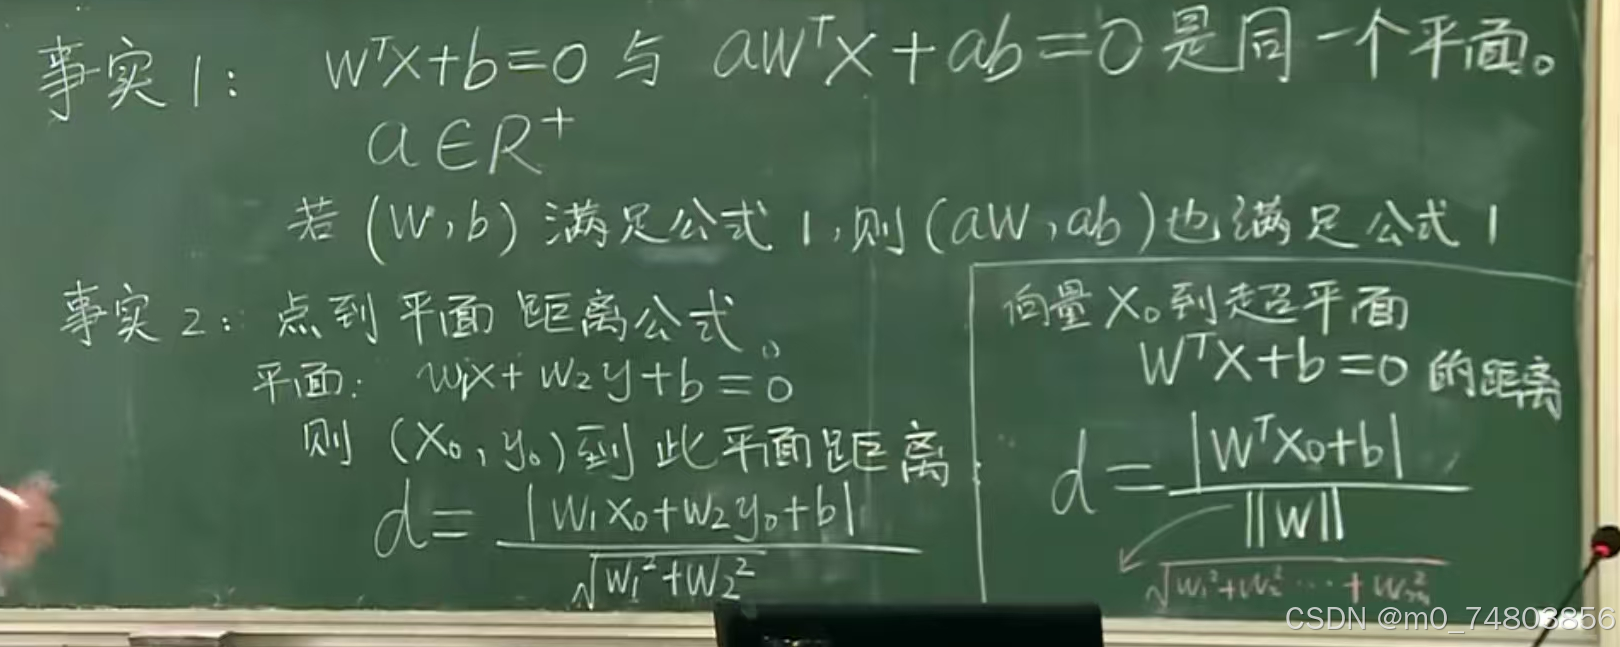 事实1： WᵀX+b=0 与 aWᵀX+ab=0 是同一个平面。
a∈R⁺
若 (W,b) 满足公式1,则(aW,ab)也满足公式1
事实2： 点到平面距离公式。
平面： w₁x+w₂y+b=0
则 (x₀,y₀)到此平面距离
d= |w₁x₀+w₂y₀+b|
√w₁²+w₂²
向量X₀到超平面
WᵀX+b=0 的距离
d= |WᵀX₀+b|
||W||
√w₁²+w₂²…+wₘ²
CSDN @m0_74803856